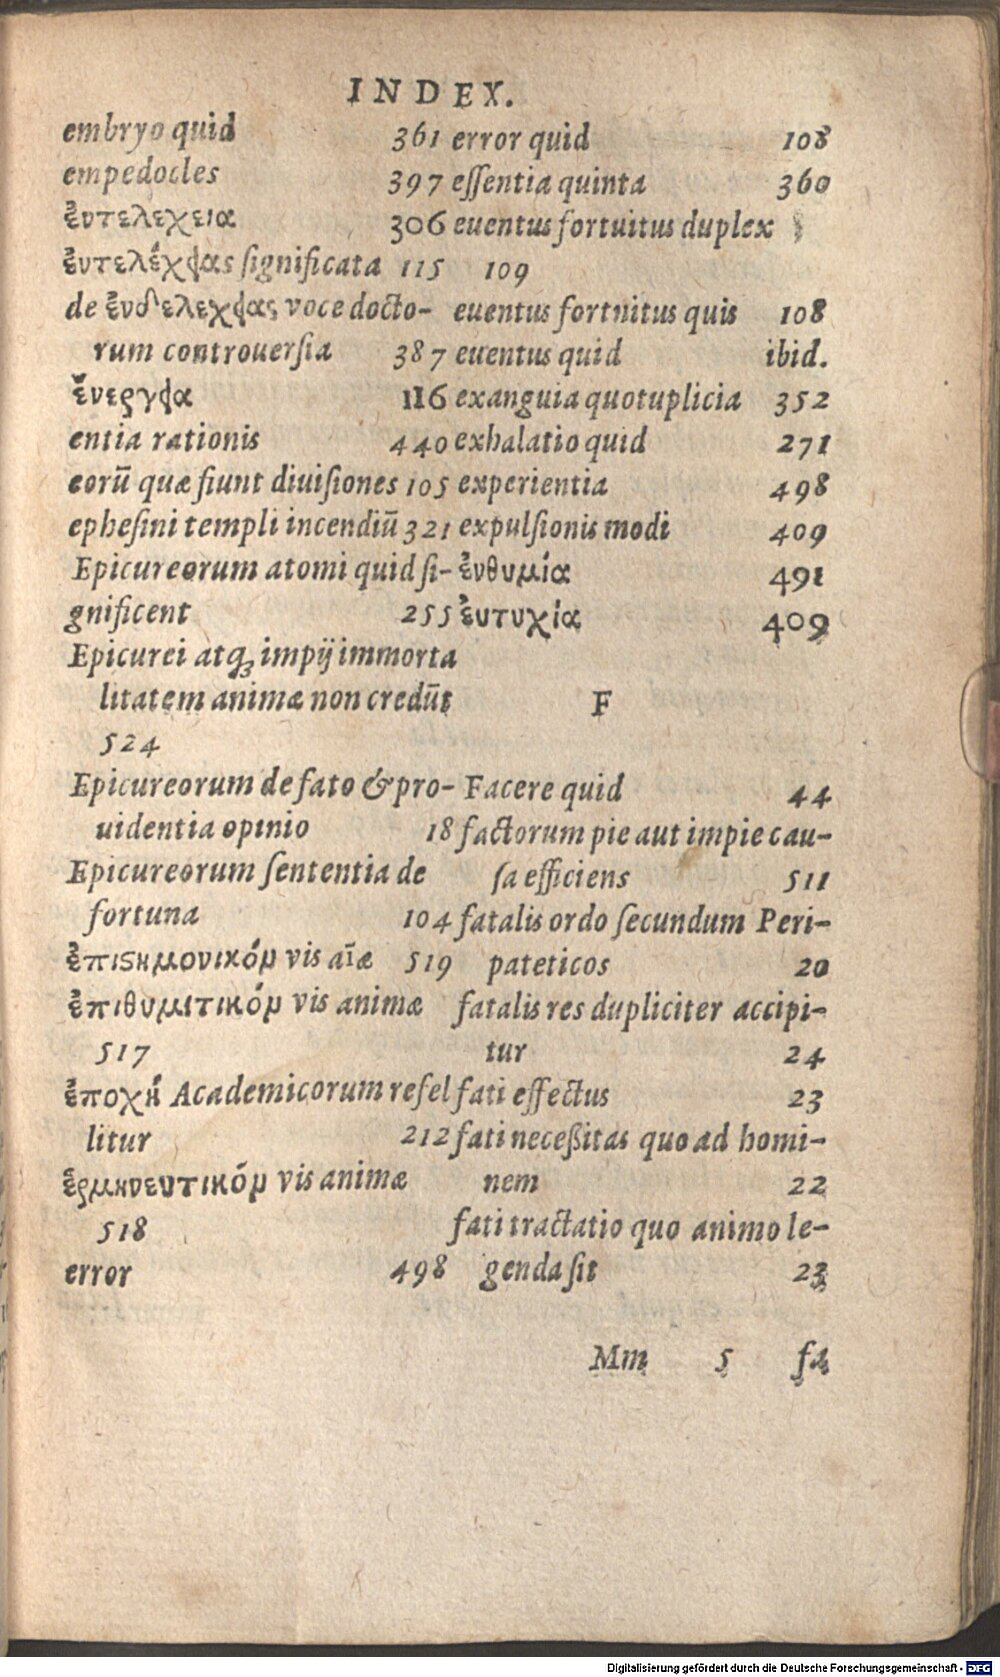 INDEX.
embryo quid 361
empedocles 397
ἐντελεχεια 306
ἐντελέχειας significata 115
de ἐνδελεχείας voce docto-
rum controuersia 387
ἐνεργεία 116
entia rationis 440
eorū quæ fiunt diuisiones 105
ephesini templi incendiū 321
Epicureorum atomi quid si-
gnificent 255
Epicurei atq; impij immorta
litatem animæ non credūt
524
Epicureorum de fato & pro-
uidentia opinio 18
Epicureorum sententia de
fortuna 104
ἐπιϛημονικόν vis aīæ 519
ἐπιθυμιτικόν vis animæ
517
ἐποχή Academicorum refel
litur 212
ἐρμηνευτικόν vis animæ
518
error 498
error quid 108
essentia quinta 360
euentus fortuitus duplex
109
euentus fortnitus quis 108
euentus quid ibid.
exanguia quotuplicia 352
exhalatio quid 271
experientia 498
expulsionis modi 409
ἐνθυμία 491
ἐυτυχία 409
F
Facere quid 44
factorum pie aut impie cau-
sa efficiens 511
fatalis ordo secundum Peri-
pateticos 20
fatalis res dupliciter accipi-
tur 24
fati effectus 23
fati neceßitas quo ad homi-
nem 22
fati tractatio quo animo le-
genda sit 23
Mm 5 fa
Digitalisierung gefördert durch die Deutsche Forschungsgemeinschaft - DFG